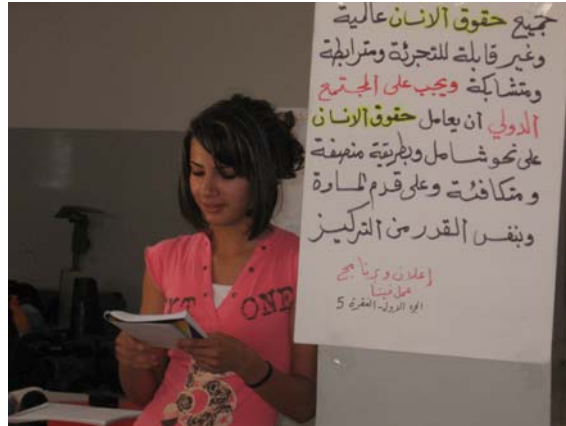 جميع حقوق الانسان عالمية
وغير قابلة للتجزئة ومترابطة
ومتشابكة ويجب على المجتمع
الدولي ان يعامل حقوق الانسان
على نحو شامل وبطريقة منصفة
ومتكافئة وعلى قدم المساواة
وبنفس القدر من التركيز
إعلان وبرنامج
عمل فيينا
الجزء الاول - الفقرة 5
ONE